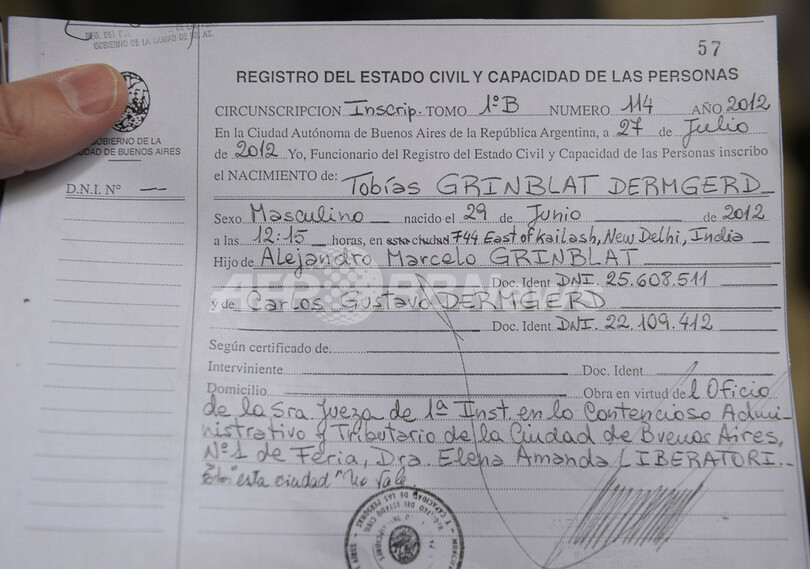 GOBIERNO DE LA CIUDAD DE BS. AS.
57
REGISTRO DEL ESTADO CIVIL Y CAPACIDAD DE LAS PERSONAS
CIRCUNSCRIPCION Inscrip. TOMO 1ºB NUMERO 114 AÑO 2012
En la Ciudad Autónoma de Buenos Aires de la República Argentina, a 27 de Julio
de 2012 Yo, Funcionario del Registro del Estado Civil y Capacidad de las Personas inscribo
el NACIMIENTO de: Tobías GRINBLAT DERMGERD
Sexo Masculino nacido el 29 de Junio de 2012
a las 12:15 horas, en esta ciudad 744 East of Kailash, New Delhi, India
Hijo de Alejandro Marcelo GRINBLAT
Doc. Ident DNI. 25.608.511
y de Carlos Gustavo DERMGERD
Doc. Ident DNI. 22.109.412
Según certificado de
Interviniente Doc. Ident
Domicilio Obra en virtud del Oficio
de la Sra Jueza de 1ª Inst. en lo Contencioso Admi-
nistrativo y Tributario de la Ciudad de Buenos Aires,
Nº1 de Feria, Dra. Elena Amanda LIBERATORI.
"esta ciudad" No Vale
GOBIERNO DE LA
CIUDAD DE BUENOS AIRES
D.N.I. Nº —
AFP